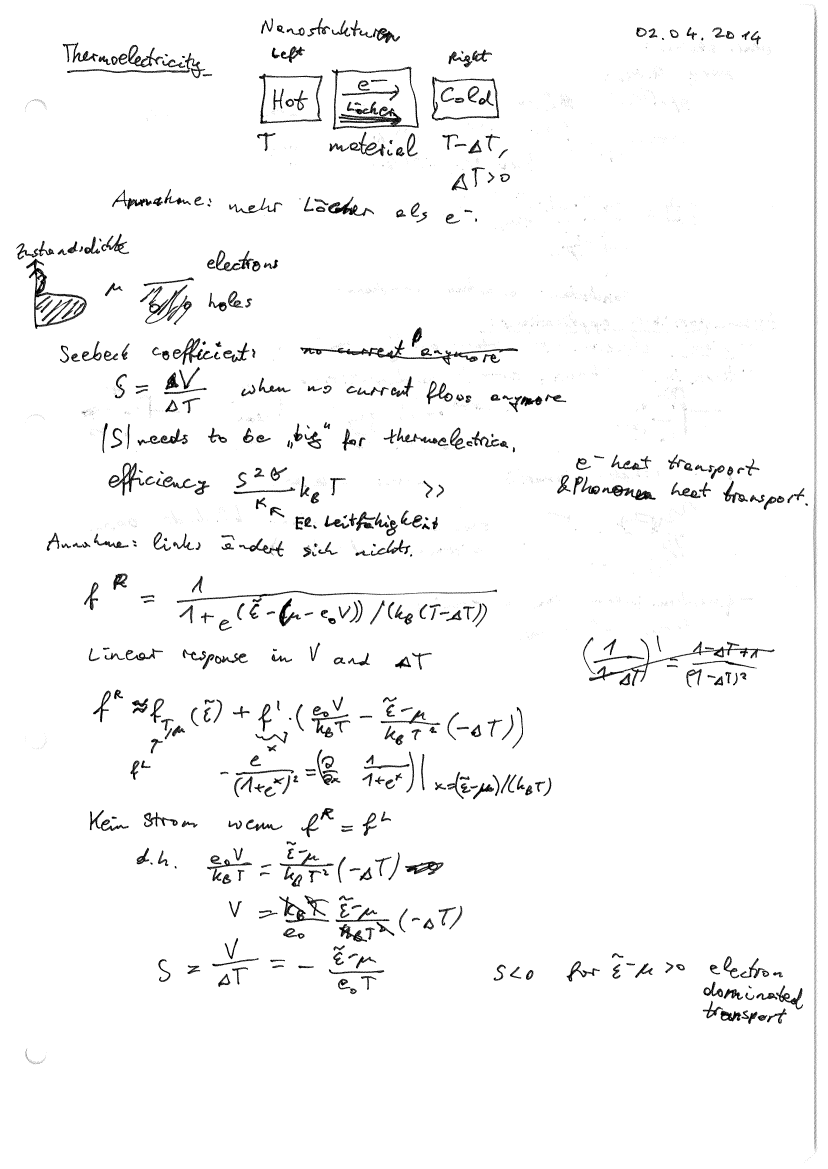 Nanostrukturen 02.04.2014
Thermoelectricity
Left Right
Hot e⁻ Löcher Cold
T material T-ΔT,
ΔT>0
Annahme: mehr Löcher als e⁻.
Zustandsdichte
μ electrons
holes
Seebeck coefficient: no current anymore
S = ΔV/ΔT when no current flows anymore
|S| needs to be „big" for thermoelectrica.
efficiency S²σ/κ k_B T >> e⁻ heat transport
& Phononen heat transport.
El. Leitfähigkeit
Annahme: links ändert sich nichts.
f^R = 1/(1+e^((ε̃-(μ-e₀V))/(k_B(T-ΔT))))
Linear response in V and ΔT (1/(1-ΔT))' = (1-ΔT+1)/(1-ΔT)²
f^R ≈ f_{T,μ}(ε̃) + f'·(e₀V/(k_B T) - (ε̃-μ)/(k_B T²)(-ΔT))
f^L - e^x/(1+e^x)² = (∂/∂x 1/(1+e^x))|_{x=(ε̃-μ)/(k_B T)}
Kein Strom wenn f^R = f^L
d.h. e₀V/(k_B T) = (ε̃-μ)/(k_B T²)(-ΔT)
V = k_B T/e₀ (ε̃-μ)/(k_B T²)(-ΔT)
S = V/ΔT = - (ε̃-μ)/(e₀T) S<0 for ε̃-μ>0 electron
dominated
transport